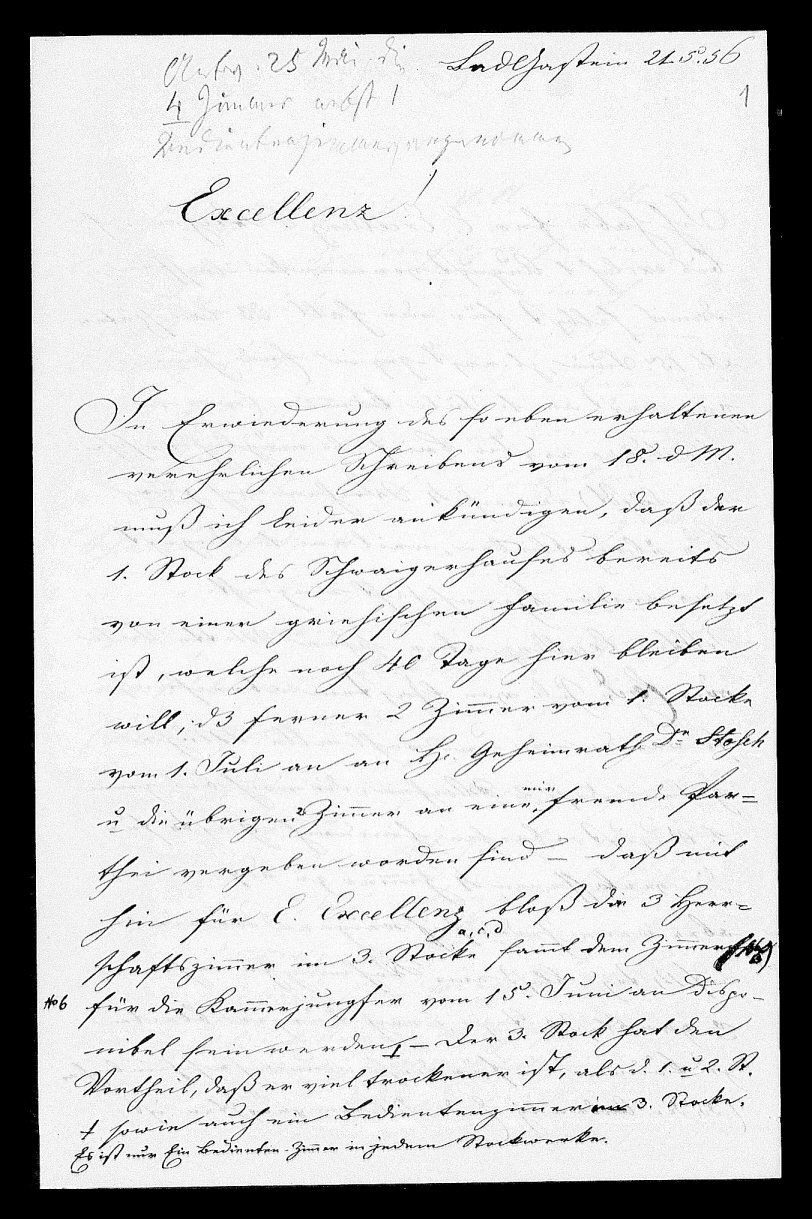 Antw. 25 Mai, die
4 Zimmer nebst 1
Bedientenzimmer angenommen
BadGastein 21.5.56
1
Excellenz!
In Erwiederung des soeben erhaltenen
verehrlichen Schreibens vom 18. d M.
muß ich leider ankündigen, daß der
1. Stock des Schwaigerhauses bereits
von einer griechischen Familie besetzt
ist, welche noch 40 Tage hier bleiben
will, dß ferner 2 Zimmer vom 1. Stocke
vom 1. Juli an an H. Geheimrath Dr. Stosch
u die übrigen 2 Zimmer an eine mir fremde Par=
thei vergeben worden sind – daß mit
hin für E. Excellenz bloß die 3 Herr=
a, c, d
schaftszimmer im 3. Stocke sammt dem Zimmer
No 6
für die Kammerjungfer vom 15. Juni an dispo-
nibel sein werden + – Der 3. Stock hat den
Vortheil, daß er viel trockener ist, als d. 1. u 2. St.
+ sowie auch ein Bedientenzimmer im 3. Stocke.
Es ist nur Ein Bedienten-Zimmer in jedem Stockwerke.